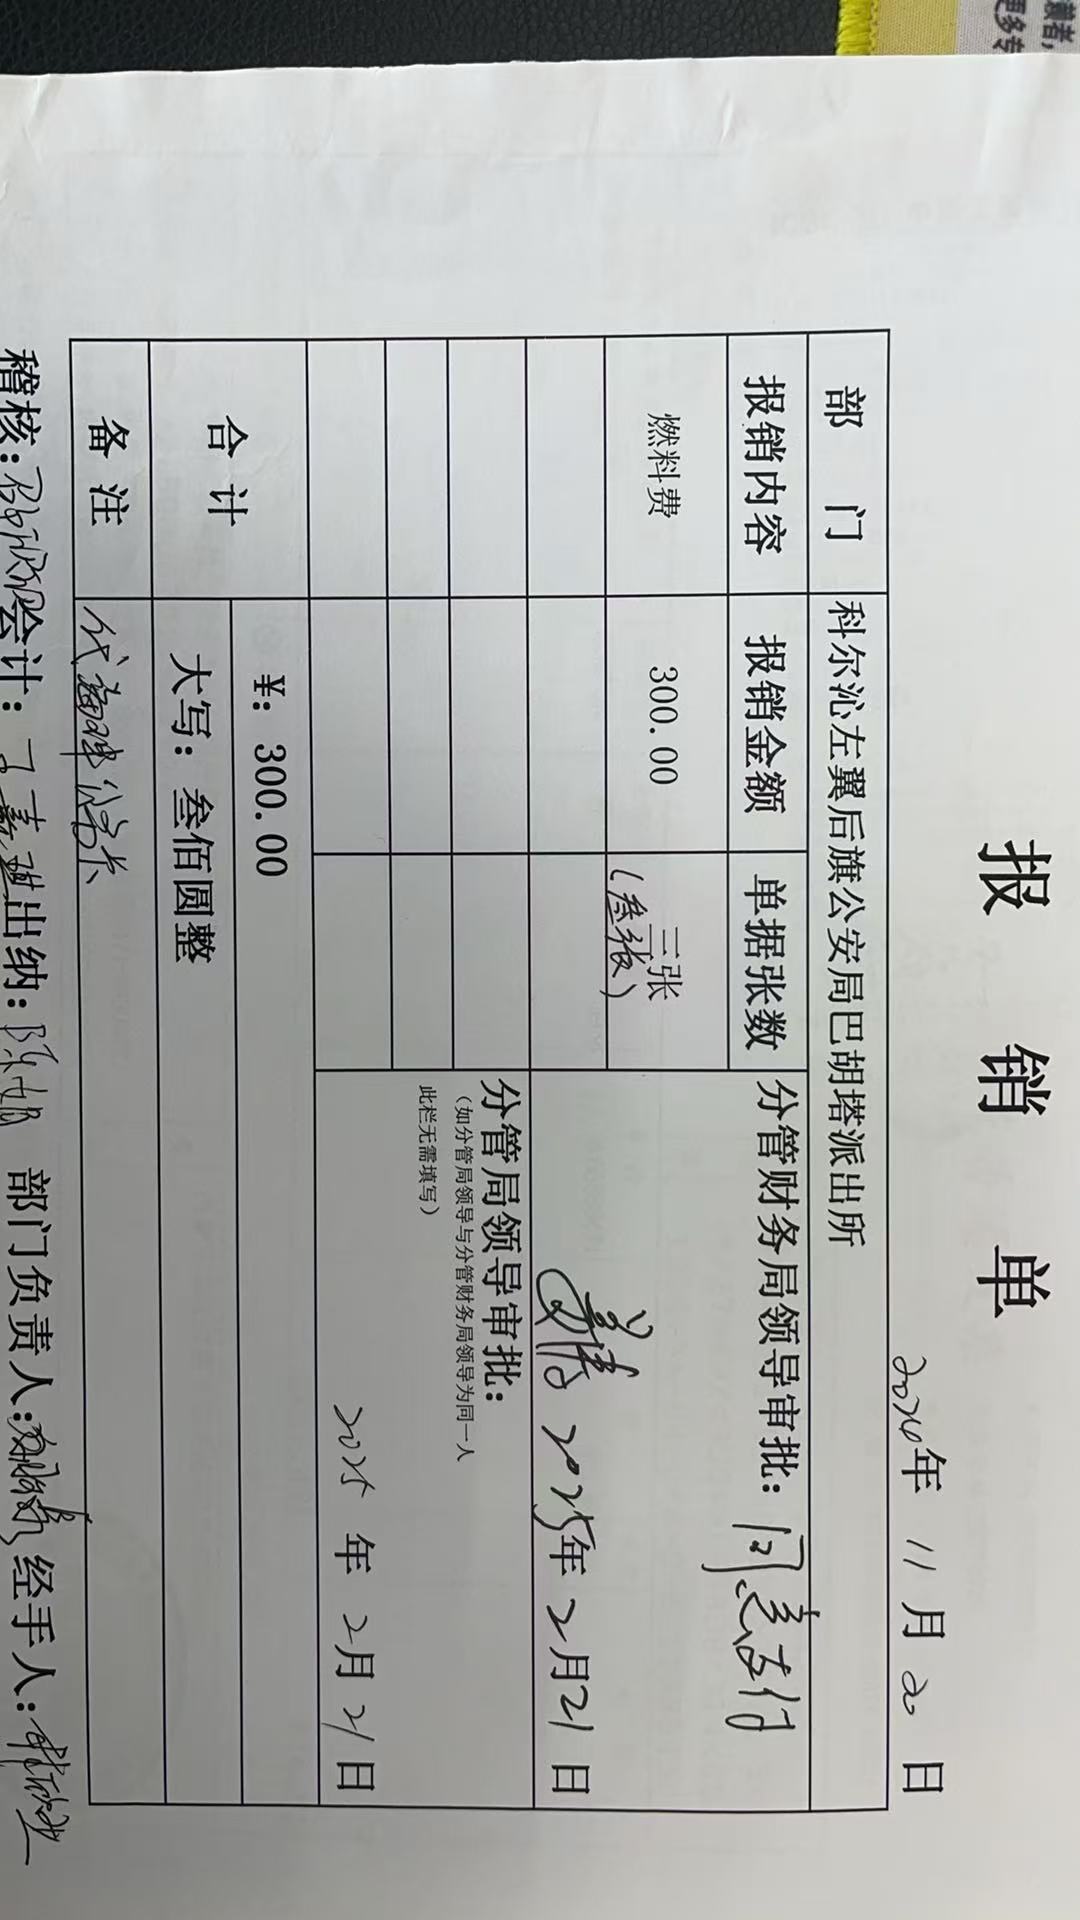 报 销 单
2024年 11月 20日
部 门 科尔沁左翼后旗公安局巴胡塔派出所
报销内容 报销金额 单据张数 分管财务局领导审批：同意支付
燃料费 300.00 三张
(叁张)
2025年 2月21日
分管局领导审批：
（如分管局领导与分管财务局领导为同一人
此栏无需填写）
2025 年 2月 21日
合 计 ¥: 300.00
大写：叁佰圆整
备 注
稽核： 会计： 出纳： 部门负责人： 经手人：